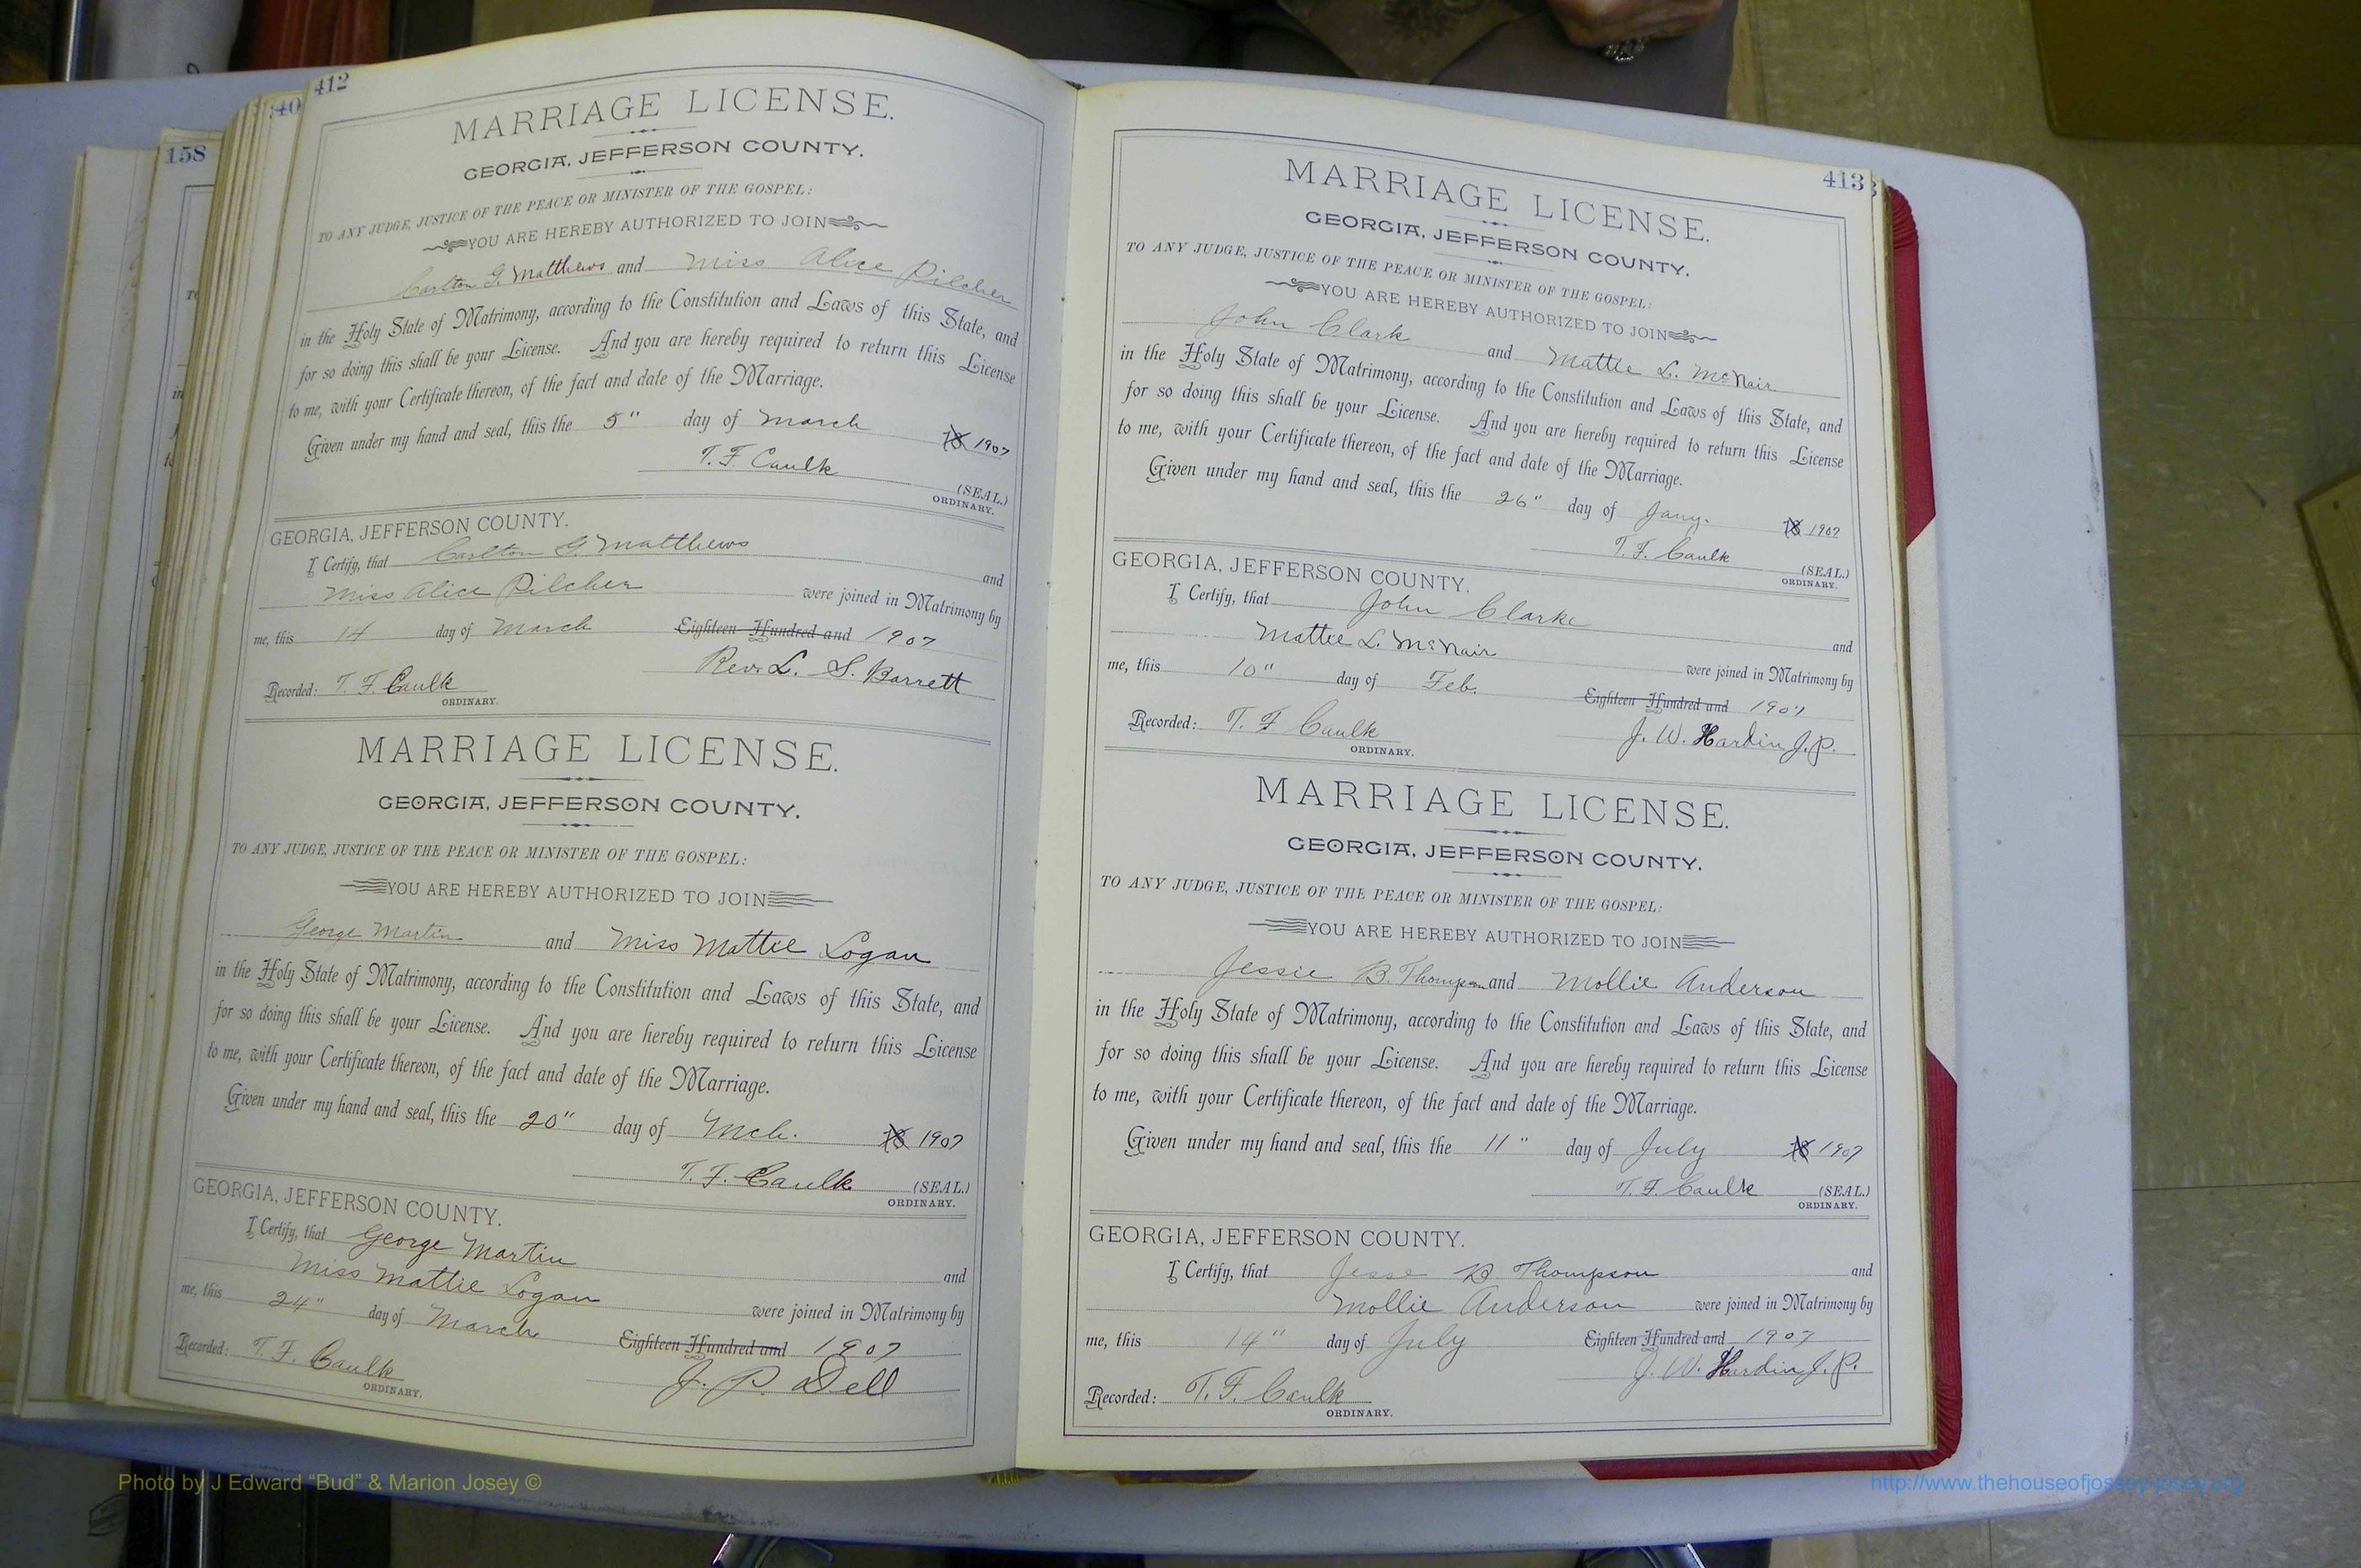 158
40
412
MARRIAGE LICENSE.
GEORGIA, JEFFERSON COUNTY.
TO ANY JUDGE, JUSTICE OF THE PEACE OR MINISTER OF THE GOSPEL:
YOU ARE HEREBY AUTHORIZED TO JOIN
Carlton G. Matthews and Miss Alice Pilcher
in the Holy State of Matrimony, according to the Constitution and Laws of this State, and
for so doing this shall be your License. And you are hereby required to return this License
to me, with your Certificate thereon, of the fact and date of the Marriage.
Given under my hand and seal, this the 5" day of March 18 1907
T. F. Caulk
(SEAL.)
ORDINARY.
GEORGIA, JEFFERSON COUNTY.
I Certify, that Carlton G. Matthews
and
Miss Alice Pilcher were joined in Matrimony by
me, this 14 day of March Eighteen Hundred and 1907
Rev. L. S. Barrett
Recorded: T. F. Caulk
ORDINARY.
MARRIAGE LICENSE.
GEORGIA, JEFFERSON COUNTY.
TO ANY JUDGE, JUSTICE OF THE PEACE OR MINISTER OF THE GOSPEL:
YOU ARE HEREBY AUTHORIZED TO JOIN
George Martin and Miss Mattie Logan
in the Holy State of Matrimony, according to the Constitution and Laws of this State, and
for so doing this shall be your License. And you are hereby required to return this License
to me, with your Certificate thereon, of the fact and date of the Marriage.
Given under my hand and seal, this the 20" day of Mch. 18 1907
T. F. Caulk (SEAL.)
ORDINARY.
GEORGIA, JEFFERSON COUNTY.
I Certify, that George Martin
and
Miss Mattie Logan were joined in Matrimony by
me, this 24" day of March Eighteen Hundred and 1907
J. P. Dell
Recorded: T. F. Caulk
ORDINARY.
413
MARRIAGE LICENSE.
GEORGIA, JEFFERSON COUNTY.
TO ANY JUDGE, JUSTICE OF THE PEACE OR MINISTER OF THE GOSPEL:
YOU ARE HEREBY AUTHORIZED TO JOIN
John Clark and Mattie L. McNair
in the Holy State of Matrimony, according to the Constitution and Laws of this State, and
for so doing this shall be your License. And you are hereby required to return this License
to me, with your Certificate thereon, of the fact and date of the Marriage.
Given under my hand and seal, this the 26" day of Jany. 18 1907
T. F. Caulk (SEAL.)
ORDINARY.
GEORGIA, JEFFERSON COUNTY.
I Certify, that John Clarke
and
Mattie L. McNair were joined in Matrimony by
me, this 10" day of Feb. Eighteen Hundred and 1907
J. W. Hardin J.P.
Recorded: T. F Caulk
ORDINARY.
MARRIAGE LICENSE.
GEORGIA, JEFFERSON COUNTY.
TO ANY JUDGE, JUSTICE OF THE PEACE OR MINISTER OF THE GOSPEL:
YOU ARE HEREBY AUTHORIZED TO JOIN
Jessie B. Thompson and Mollie Anderson
in the Holy State of Matrimony, according to the Constitution and Laws of this State, and
for so doing this shall be your License. And you are hereby required to return this License
to me, with your Certificate thereon, of the fact and date of the Marriage.
Given under my hand and seal, this the 11" day of July 18 1907
T. F. Caulk (SEAL.)
ORDINARY.
GEORGIA, JEFFERSON COUNTY.
I Certify, that Jesse B Thompson and
Mollie Anderson were joined in Matrimony by
me, this 14" day of July Eighteen Hundred and 1907
J. W. Hardin J.P.
Recorded: T. F. Caulk
ORDINARY.
Photo by J Edward “Bud” & Marion Josey ©
http://www.thehouseofjossey-josey.org